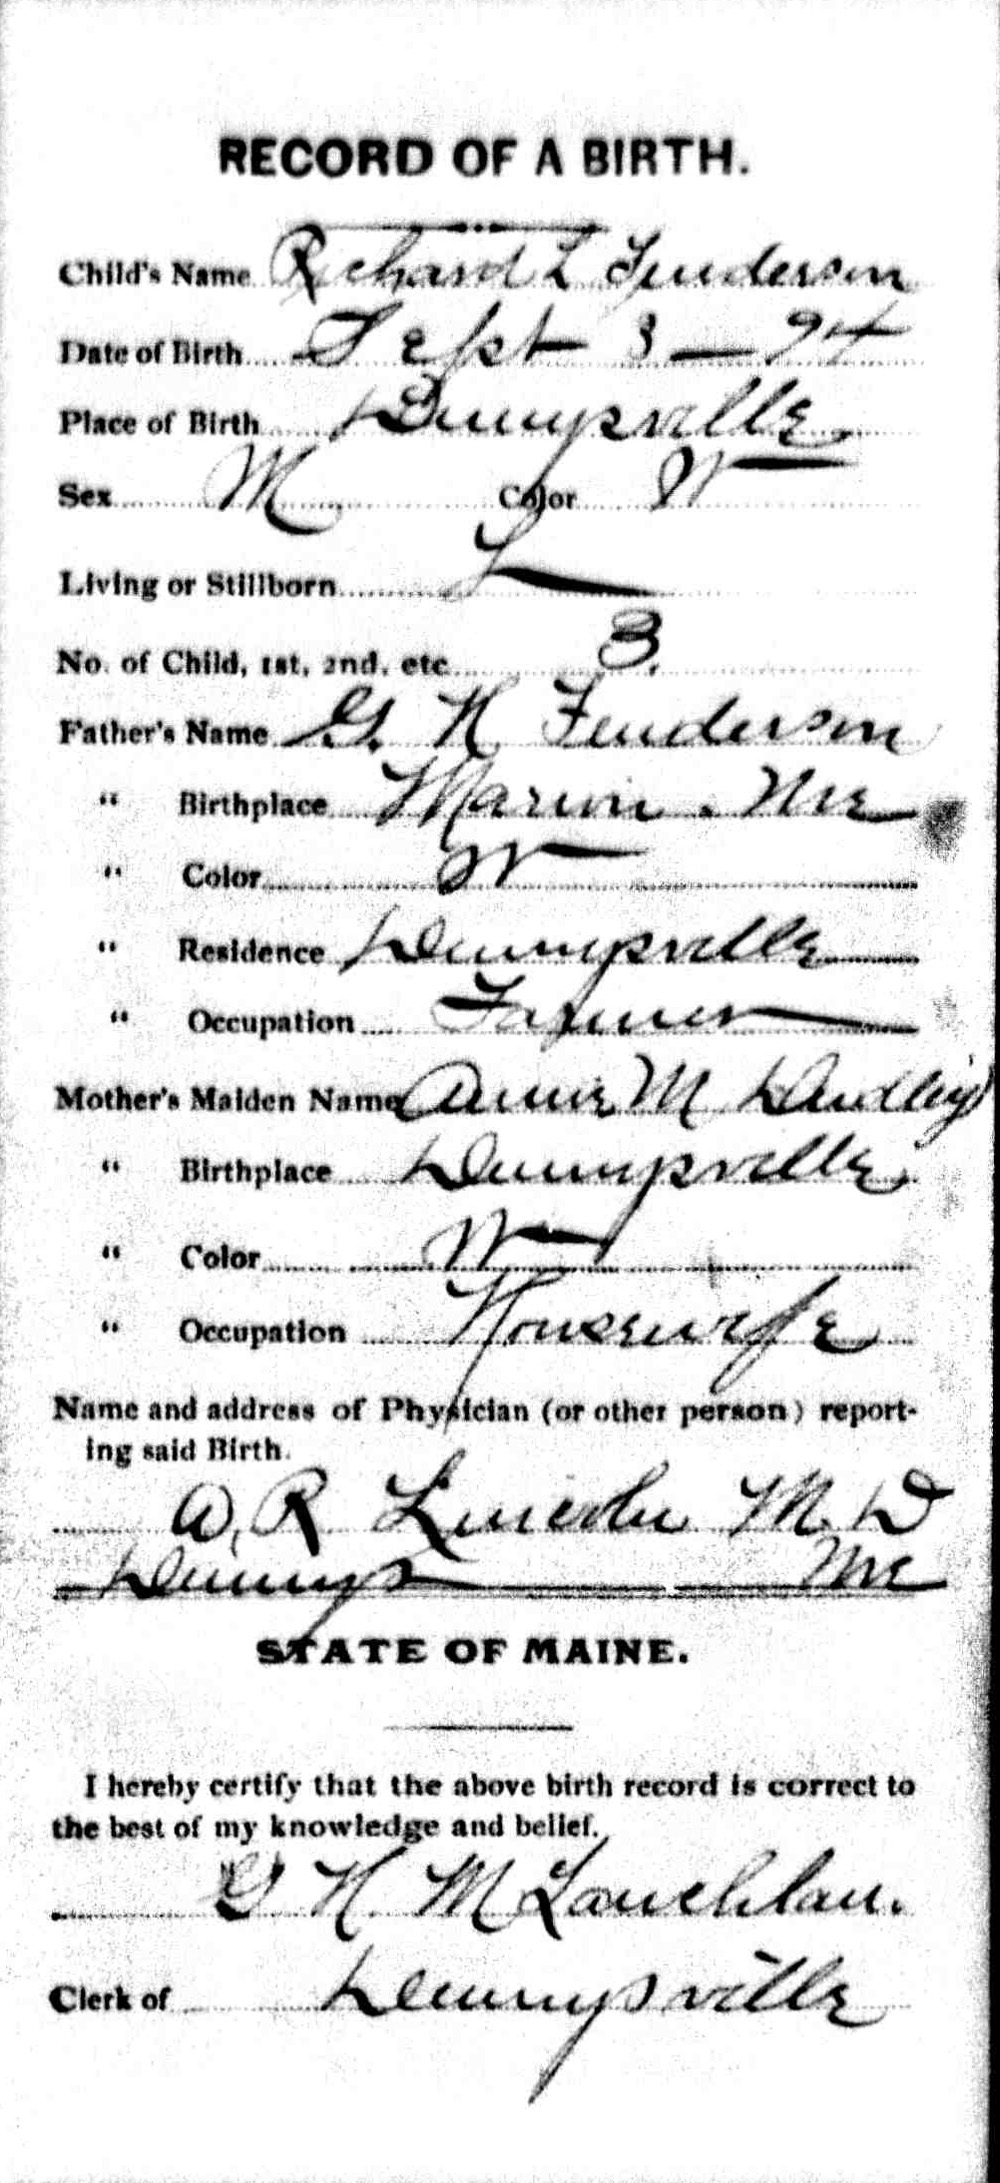 RECORD OF A BIRTH.
Child's Name Richard L Fenderson
Date of Birth Sept 3 — 94
Place of Birth Dennysville
Sex M Color W
Living or Stillborn L
No. of Child, 1st, 2nd, etc. 3.
Father's Name G. H Fenderson
" Birthplace Marion. Me
" Color W
" Residence Dennysville
" Occupation Farmer
Mother's Maiden Name Annie M
" Birthplace Dennysville
" Color W
" Occupation Housewife
Name and address of Physician (or other person) report-
ing said Birth.
A. R Lincoln M. D
Dennys Me
STATE OF MAINE.
I hereby certify that the above birth record is correct to
the best of my knowledge and belief.
G H McLauchlan.
Clerk of Dennysville